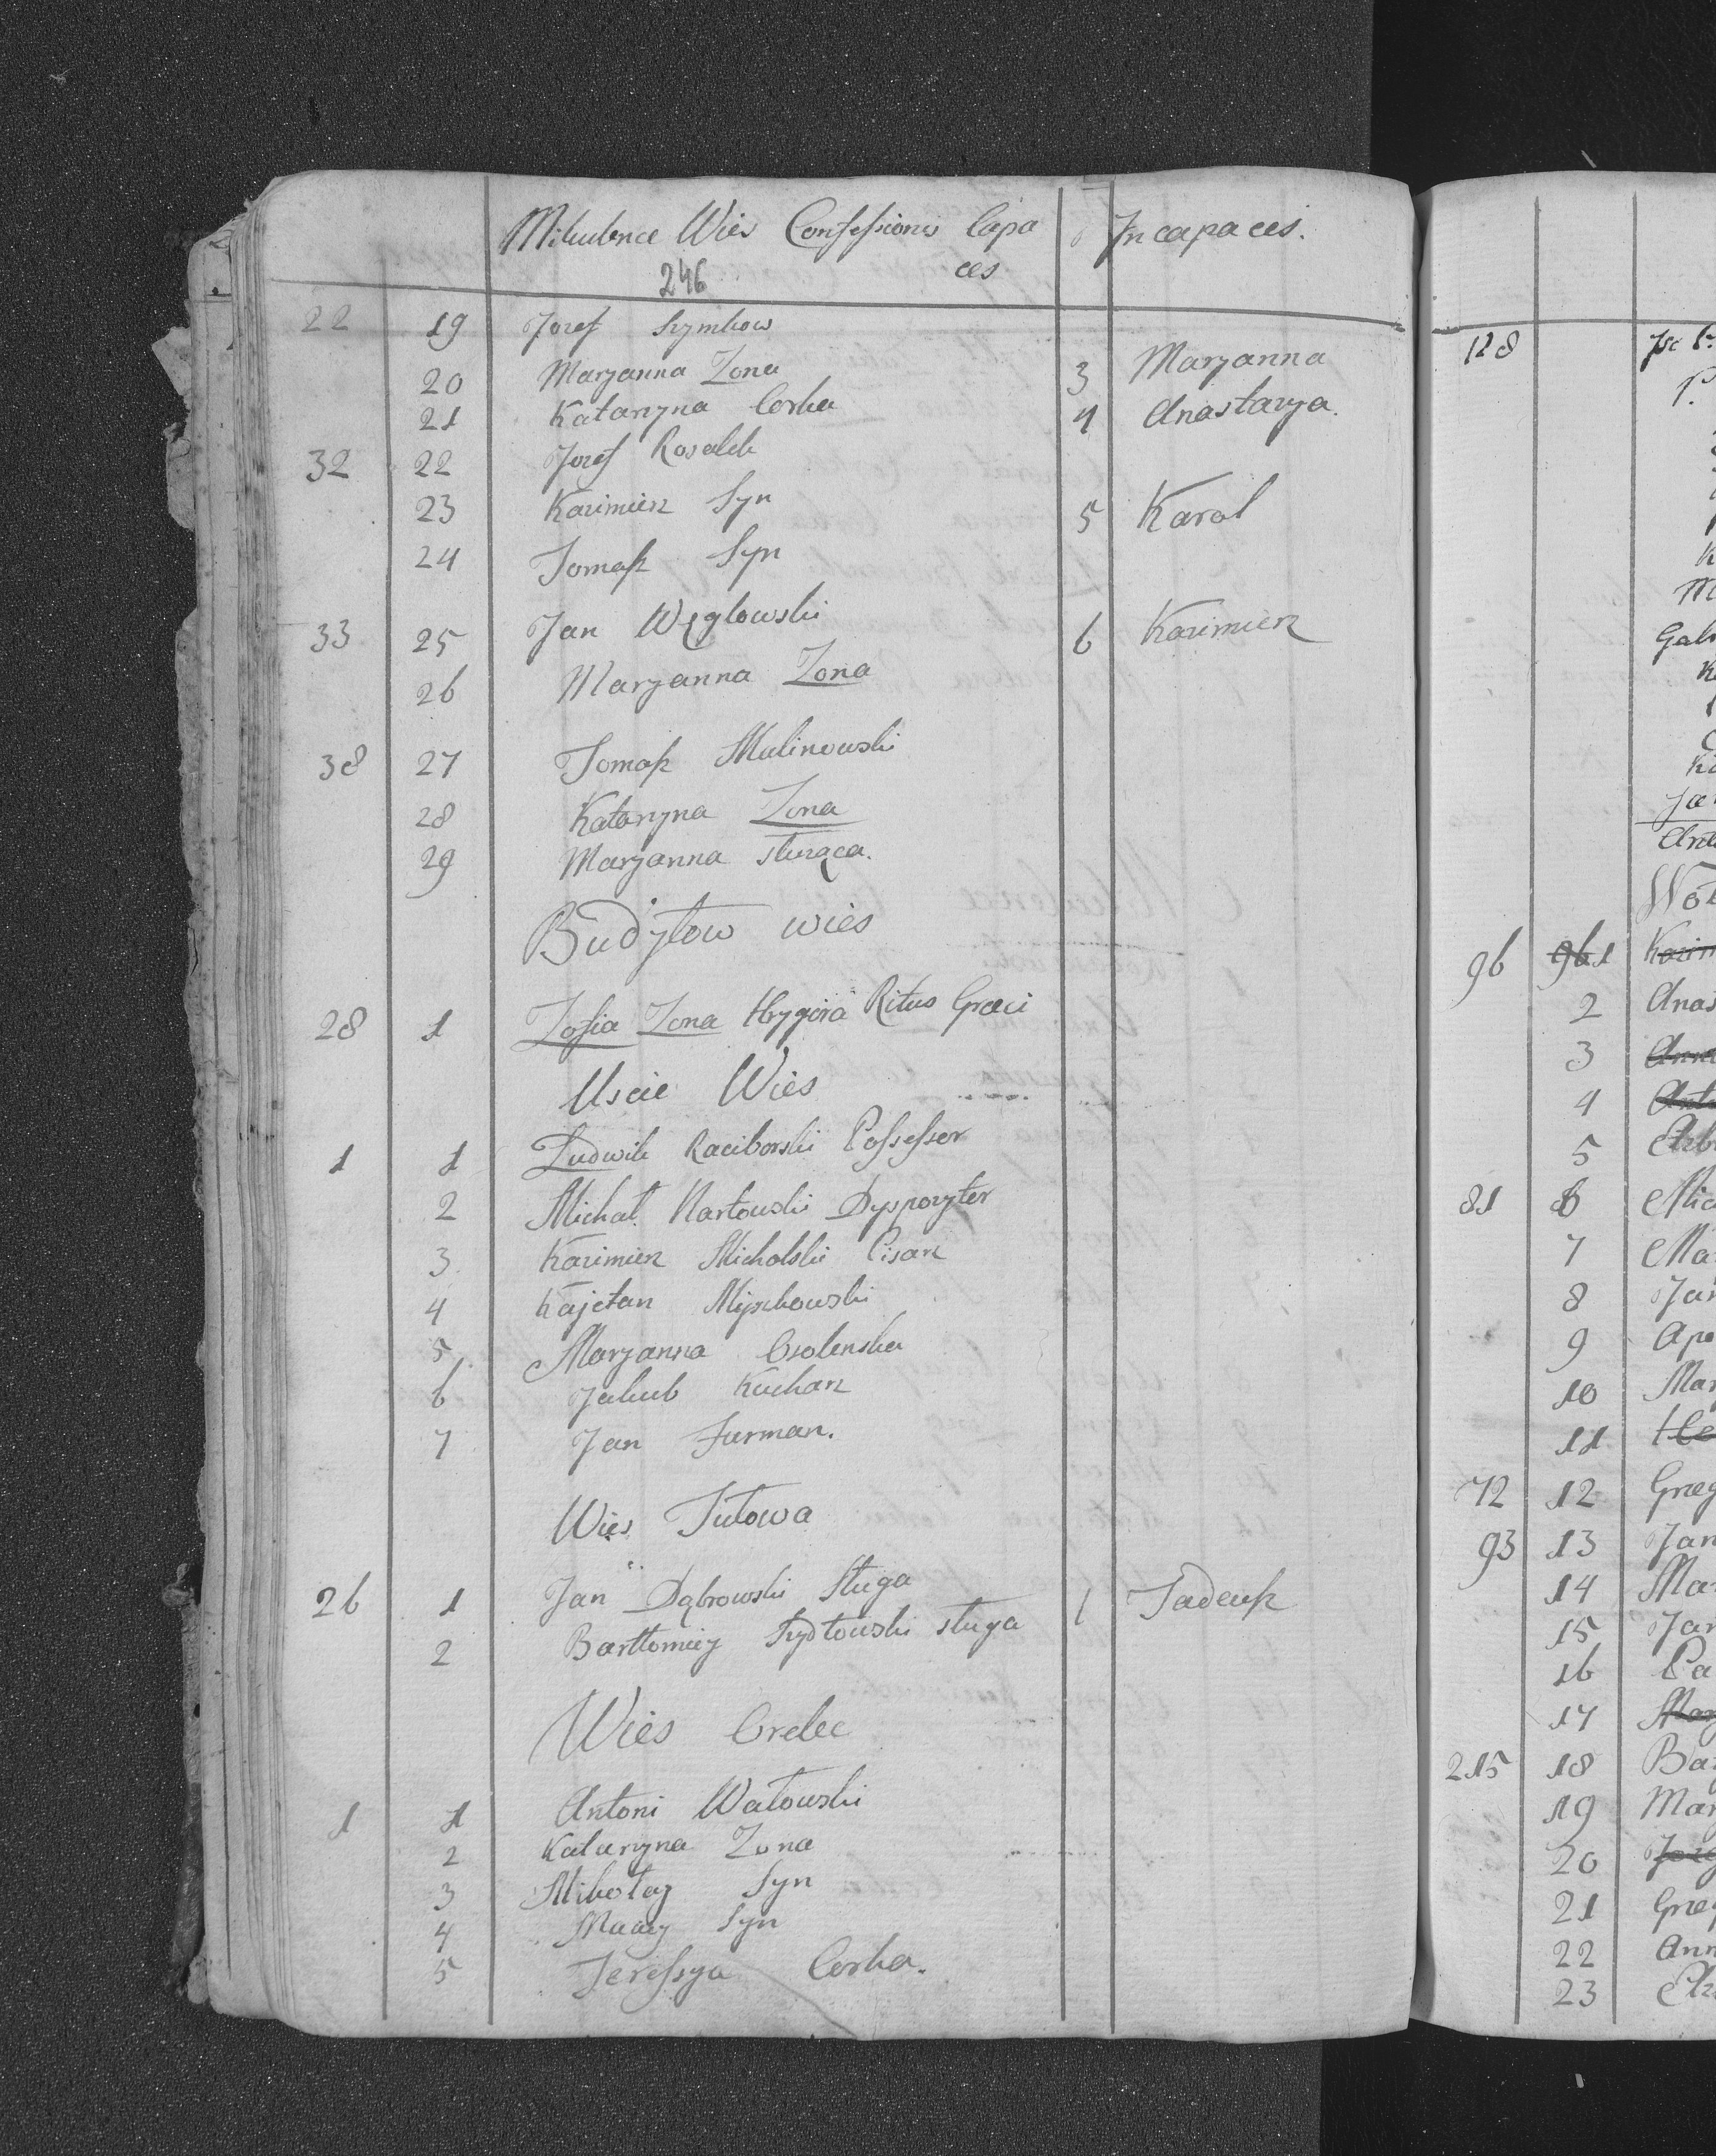 Mikulence Wies Confessionis Capa Incapaces.
ces
246
22 19 Jozef Szymkow
20 Maryanna Zona 3 Maryanna
21 Katarzyna Corka 4 Anastazya.
32 22 Jozef
23 Kazimierz Syn 5 Karol
24 Tomasz Syn
33 25 Jan Węglowski 6 Kazimierz
26 Maryanna Zona
38 27 Tomasz Malinowski
28 Katarzyna Zona
29 Maryanna służąca.
Budyłow wies
28 1 Zofia Zona Hrygora Ritus Graeci
Uscie Wies
1 1 Ludwik Raciborski Possessor
2 Michał Nartowski Dyspozyter
3 Kazimierz Michalski Pisarz
4 Kajetan Myszkowski
5 Maryanna
6 Jakub Kucharz
7 Jan Furman.
Wies Tułowa
26 1 Jan Dąbrowski Sługa 1 Tadeusz
2 Bartłomiey Szydłowski sługa
Wies Orelec
1 1 Antoni Wałowski
2 Katarzyna Zona
3 Mikołay Syn
4 Maciey Syn
5 Teressya Corka.
128
P.
K
M
Gab
Ja
96 961
2 Anas
3 Anna
4
5
81 6 Mic
7 Ma
8 Jan
9 Apo
10 Mar
11
72 12 Grzeg
93 13 Jan
14 Mar
15 Jan
16 Pa
17 Mary
215 18 Ba
19 Mar
20
21 Grzeg
22 Ann
23 Elz